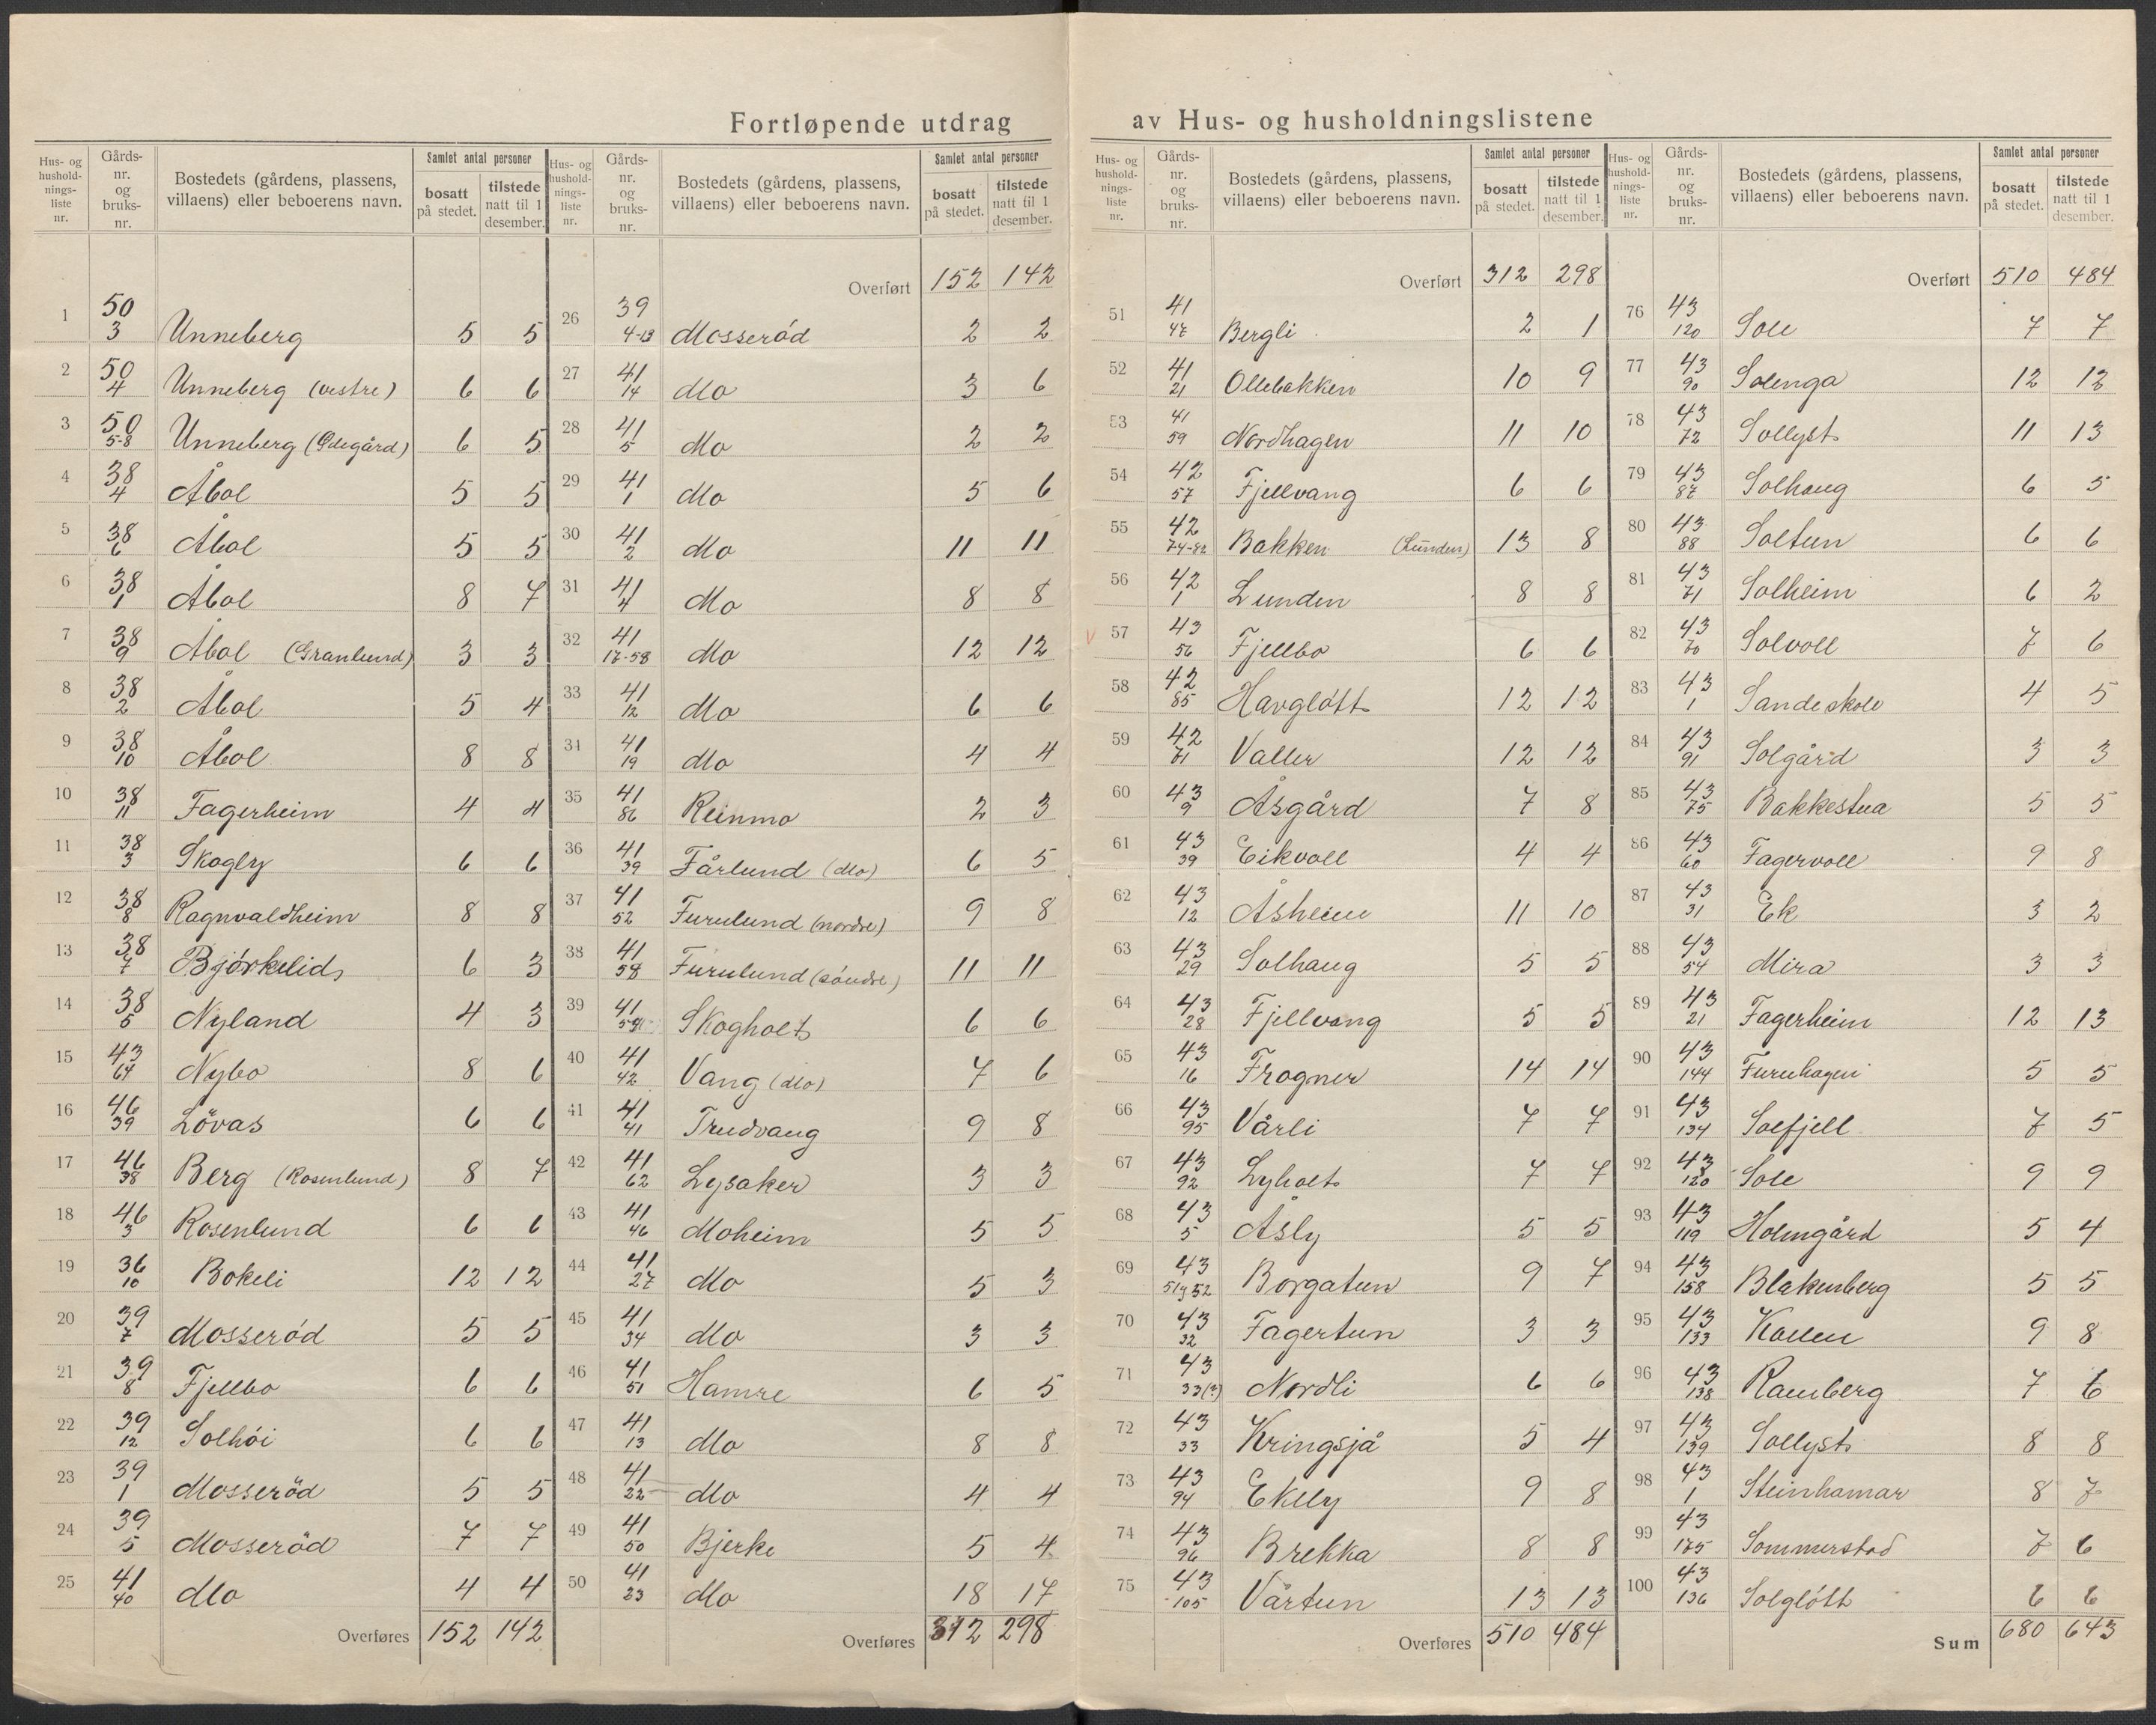 Fortløpende utdrag av Hus- og husholdningslistene
Hus- og husholdnings- liste nr. | Gårds- nr. og bruks- nr. | Bostedets (gårdens, plassens, villaens) eller beboerens navn. | Samlet antal personer | bosatt på stedet. | tilstede natt til 1 desember.
1 50/3 Unneberg 5 5
2 50/4 Unneberg (vestre) 6 6
3 50/5-8 Unneberg (Ödegård) 6 5
4 38/4 Åbol 5 5
5 38/6 Åbol 5 5
6 38/1 Åbol 8 7
7 38/9 Åbol (Granlund) 3 3
8 38/2 Åbol 5 4
9 38/10 Åbol 8 8
10 38/11 Fagerheim 4 4
11 38/3 Skogly 6 6
12 38/8 Ragnvaldheim 8 8
13 38/7 Björkelid 6 3
14 38/5 Nyland 4 3
15 43/64 Nybo 8 6
16 46/39 Lövas 6 6
17 46/38 Berg (Rosenlund) 8 7
18 46/3 Rosenlund 6 6
19 36/10 Bokeli 12 12
20 39/7 Mosseröd 5 5
21 39/8 Fjellbo 6 6
22 39/12 Solhöi 6 6
23 39/1 Mosseröd 5 5
24 39/5 Mosseröd 7 7
25 41/40 Mo 4 4
Overføres 152 142
Hus- og husholdnings- liste nr. | Gårds- nr. og bruks- nr. | Bostedets (gårdens, plassens, villaens) eller beboerens navn. | Samlet antal personer | bosatt på stedet. | tilstede natt til 1 desember.
Overført 152 142
26 39/4-13 Mosseröd 2 2
27 41/14 Mo 3 6
28 41/5 Mo 2 2
29 41/1 Mo 5 6
30 41/2 Mo 11 11
31 41/4 Mo 8 8
32 41/17-58 Mo 12 12
33 41/12 Mo 6 6
34 41/19 Mo 4 4
35 41/86 Reinmo 2 3
36 41/39 Fårlund (Mo) 6 5
37 41/52 Furulund (nordre) 9 8
38 41/58 Furulund (söndre) 11 11
39 41 Skogholt 6 6
40 41/42 Vang (Mo) 7 6
41 41/41 Trudvang 9 8
42 41/62 Lysaker 3 3
43 41/46 Moheim 5 5
44 41/27 Mo 5 3
45 41/34 Mo 3 3
46 41/51 Hamre 6 5
47 41/13 Mo 8 8
48 41/22 Mo 4 4
49 41/50 Bjerke 5 4
50 41/23 Mo 18 17
Overføres 312 298
Hus- og husholdnings- liste nr. | Gårds- nr. og bruks- nr. | Bostedets (gårdens, plassens, villaens) eller beboerens navn. | Samlet antal personer | bosatt på stedet. | tilstede natt til 1 desember.
Overført 312 298
51 41/47 Bergli 2 1
52 41/21 Ollebakken 10 9
53 41/59 Nordhagen 11 10
54 42/57 Fjellvang 6 6
55 42/74-82 Bakken (Lunden) 13 8
56 42/1 Lunden 8 8
57 43/56 Fjellbo 6 6
58 42/85 Havglött 12 12
59 42/71 Valler 12 12
60 43/9 Åsgård 7 8
61 43/39 Eikvoll 4 4
62 43/12 Åsheim 11 10
63 43/29 Solhaug 5 5
64 43/28 Fjellvang 5 5
65 43/16 Frogner 14 14
66 43/95 Vårli 7 7
67 43/92 Lyholt 7 7
68 43/5 Åsly 5 5
69 43/51 y 52 Borgatun 9 7
70 43/32 Fagertun 3 3
71 43/33(?) Nordli 6 6
72 43/33 Kringsjå 5 4
73 43/94 Ekely 9 8
74 43/96 Brekka 8 8
75 43/105 Vårtun 13 13
Overføres 510 484
Hus- og husholdnings- liste nr. | Gårds- nr. og bruks- nr. | Bostedets (gårdens, plassens, villaens) eller beboerens navn. | Samlet antal personer | bosatt på stedet. | tilstede natt til 1 desember.
Overført 510 484
76 43/120 Sole 7 7
77 43/90 Solenga 12 12
78 43/72 Sollyst 11 13
79 43/87 Solhaug 6 5
80 43/88 Soltun 6 6
81 43/71 Solheim 6 2
82 43/70 Solvoll 7 6
83 43/1 Sande skole 4 5
84 43/91 Solgård 3 3
85 43/75 Bakkestua 5 5
86 43/60 Fagervoll 9 8
87 43/31 Ek 3 2
88 43/54 Mira 3 3
89 43/21 Fagerheim 12 13
90 43/144 Furuhagen 5 5
91 43/134 Solfjell 7 5
92 43/120 Sole 9 9
93 43/119 Holmgård 5 4
94 43/158 Blakenberg 5 5
95 43/133 Kollen 9 8
96 43/138 Ramberg 7 6
97 43/139 Sollyst 8 8
98 43/1 Steinhamar 8 7
99 43/175 Sommerstad 7 6
100 43/136 Solglött 6 6
Sum 680 643